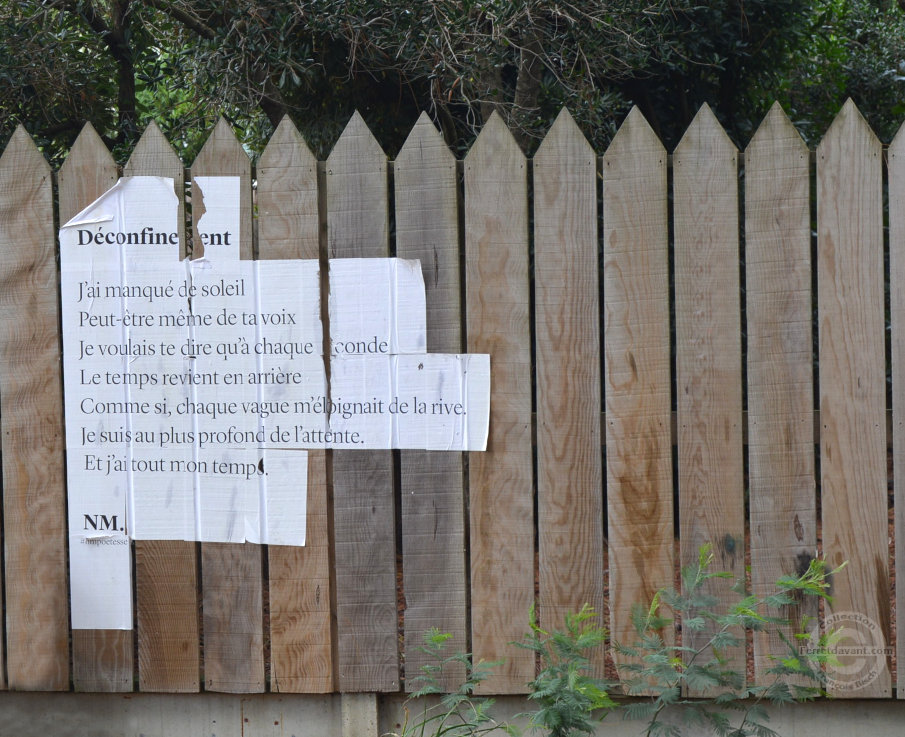 Déconfine ent
J'ai manqué de soleil
Peut-être même de ta voix
Je voulais te dire qu'à chaque conde
Le temps revient en arrière
Comme si, chaque vague m'éloignait de la rive.
Je suis au plus profond de l'attente.
Et j'ai tout mon temps.
NM.
Collection
Ferretdavant.com